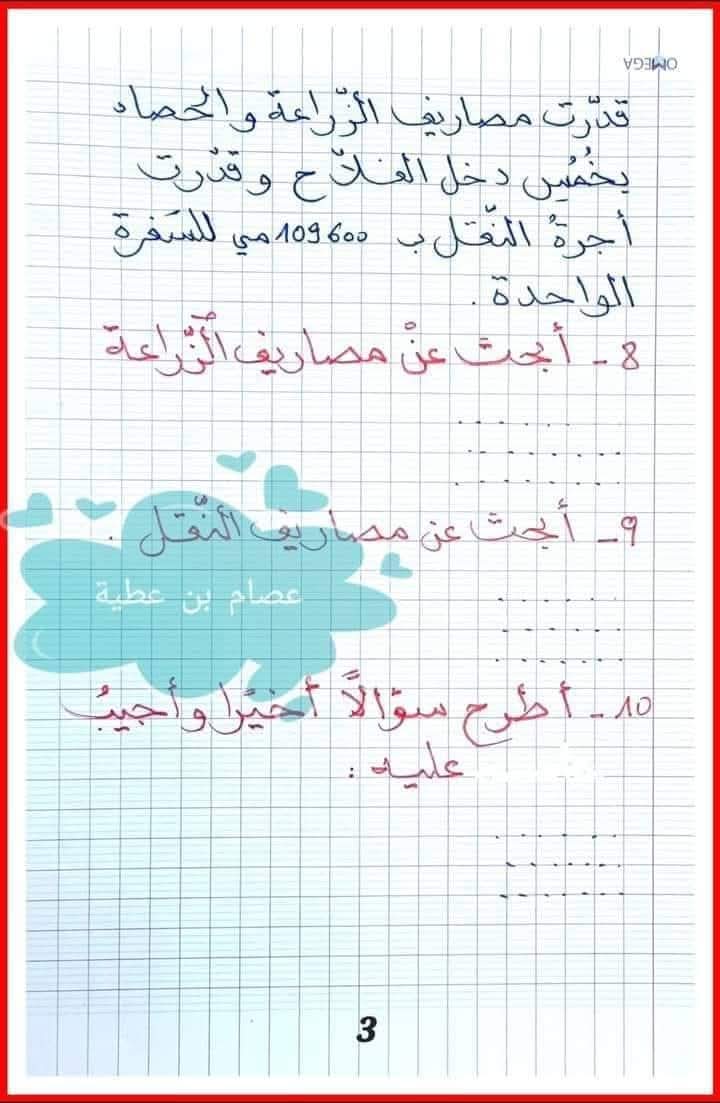 OMEGA
قدّرت مصاريف الزّراعة والحصاد
بخُمُسِ دخل الفلاّح وقدّرت
أجرةُ النّقل بـ 109600 مي للسَفرة
الواحدة.
8 - أبحث عنْ مصاريف الزّراعة
. . . . . .
. . . . . . .
. . . . . . .
9 - أبحث عن مصاريف النّقل.
عصام بن عطية
. . . . .
. . . . . .
. . . . . .
10 - أطرح سؤالاً أخيرًا وأجيبُ
عليه :
. . . . . .
. . . . . .
. . . . . . .
3